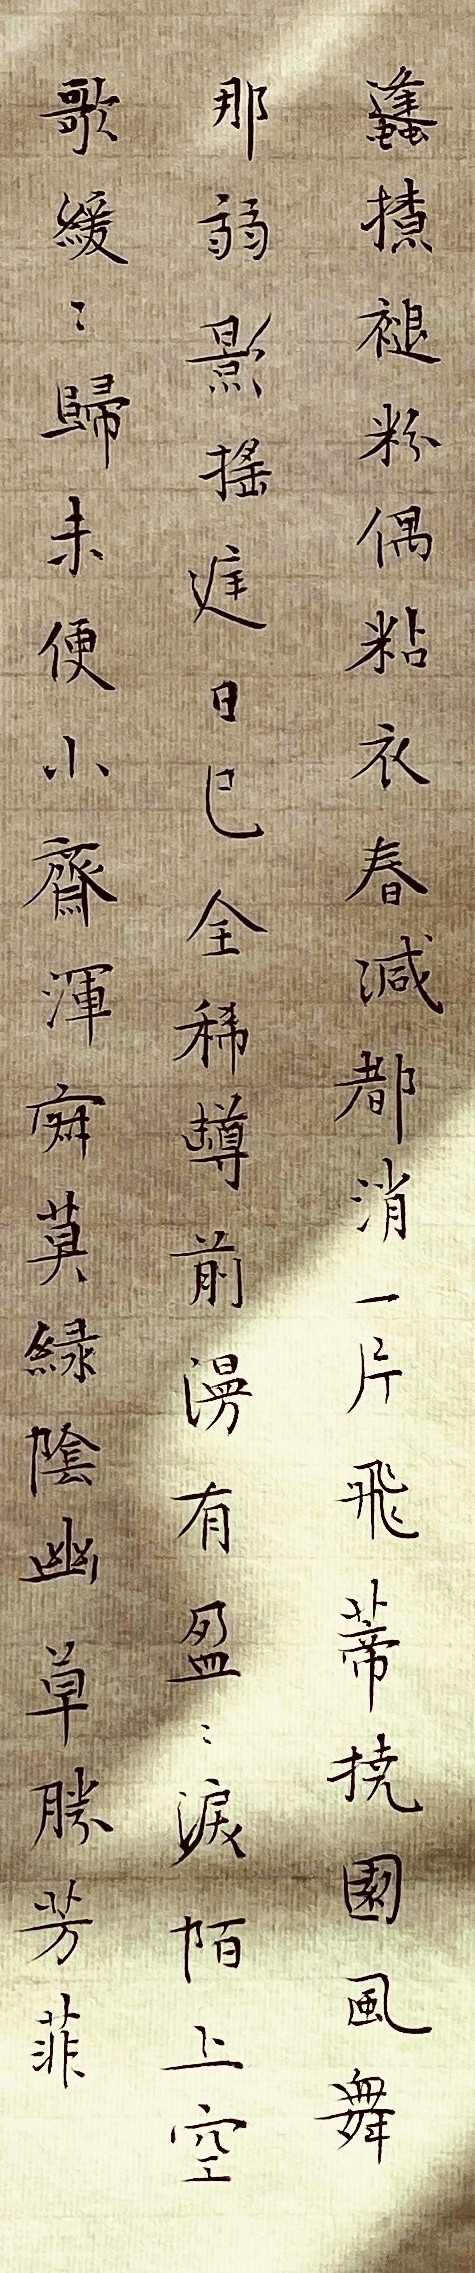 蠭攅褪粉偶粘衣春減都消一片飛蒂撓園風舞
那弱影搖庭日已全稀蹲前漫有盈〻淚陌上空
歌緩〻歸未便小齋渾寂莫綠陰幽草勝芳菲